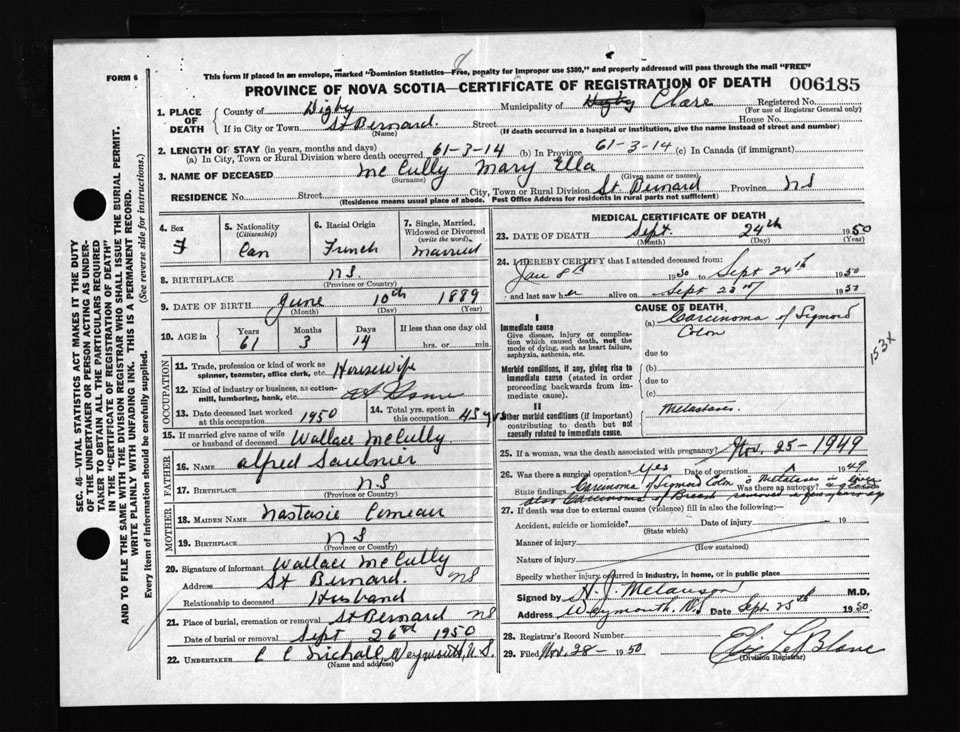 FORM 6
This form if placed in an envelope, marked "Dominion Statistics—Free, penalty for improper use $300," and properly addressed will pass through the mail "FREE"
PROVINCE OF NOVA SCOTIA—CERTIFICATE OF REGISTRATION OF DEATH 006185
SEC. 46—VITAL STATISTICS ACT MAKES IT THE DUTY
OF THE UNDERTAKER OR PERSON ACTING AS UNDER-
TAKER TO OBTAIN ALL THE PARTICULARS REQUIRED
IN THE "CERTIFICATE OF REGISTRATION OF DEATH"
AND TO FILE THE SAME WITH THE DIVISION REGISTRAR WHO SHALL ISSUE THE BURIAL PERMIT.
WRITE PLAINLY WITH UNFADING INK. THIS IS A PERMANENT RECORD.
Every item of information should be carefully supplied. (See reverse side for instructions.)
1. PLACE OF DEATH
County of Digby Municipality of Digby Clare Registered No.
(For use of Registrar General only)
If in City or Town St Bernard. Street House No.
(Name) (If death occurred in a hospital or institution, give the name instead of street and number)
2. LENGTH OF STAY (in years, months and days)
(a) In City, Town or Rural Division where death occurred 61-3-14 (b) In Province 61-3-14 (c) In Canada (if immigrant)
3. NAME OF DECEASED McCully Mary Ella
(Surname) (Given name or names)
RESIDENCE No. Street City, Town or Rural Division St. Bernard Province N S
(Residence means usual place of abode. Post Office Address for residents in rural parts not sufficient)
4. Sex F
5. Nationality (Citizenship) Can
6. Racial Origin French
7. Single, Married, Widowed or Divorced (write the word) Married
8. BIRTHPLACE N.S.
(Province or Country)
9. DATE OF BIRTH June 10th 1889
(Month) (Day) (Year)
10. AGE Years 61 Months 3 Days 14 If less than one day old
hrs. or min.
OCCUPATION
11. Trade, profession or kind of work as spinner, teamster, office clerk, etc. Housewife
12. Kind of industry or business, as cotton-mill, lumbering, bank, etc. At Home
13. Date deceased last worked at this occupation 1950 14. Total yrs. spent in this occupation 45 yrs
15. If married give name of wife or husband of deceased Wallace McCully
FATHER
16. NAME Alfred Saulnier
17. BIRTHPLACE N S
(Province or Country)
MOTHER
18. MAIDEN NAME Nastasie Comeau
19. BIRTHPLACE N S
(Province or Country)
20. Signature of informant Wallace McCully
Address St Bernard. NS
Relationship to deceased Husband
21. Place of burial, cremation or removal St Bernard NS
Date of burial or removal Sept 26th 1950
22. UNDERTAKER Weymouth, N.S.
(Name and address)
MEDICAL CERTIFICATE OF DEATH
23. DATE OF DEATH Sept. 24th 1950
(Month) (Day) (Year)
24. I HEREBY CERTIFY that I attended deceased from:
Jan 8th 1950 to Sept 24th 1950
and last saw her alive on Sept 23rd 1950
CAUSE OF DEATH
I
Immediate cause
Give disease, injury or complication which caused death, not the mode of dying, such as heart failure, asphyxia, asthenia, etc.
(a) Carcinoma of Sigmoid Colon
due to
Morbid conditions, if any, giving rise to immediate cause (stated in order proceeding backwards from immediate cause).
(b)
due to
(c)
II
Other morbid conditions (if important) contributing to death but not causally related to immediate cause.
Metastases.
153X
25. If a woman, was the death associated with pregnancy? Nov. 25-1949
26. Was there a surgical operation? Yes Date of operation 1949
State findings Carcinoma of Sigmoid Colon c Metastases in liver Was there an autopsy?
also Carcinoma of Breast removed a few years ago
27. If death was due to external causes (violence) fill in also the following:—
Accident, suicide or homicide? Date of injury 19
(State which)
Manner of injury
(How sustained)
Nature of injury
Specify whether injury occurred in industry, in home, or in public place
Signed by H. J. Melanson M.D.
Address Weymouth, NS Date Sept 25th 1950
28. Registrar's Record Number
29. Filed Nov. 28- 1950 LeBlanc
(Division Registrar)